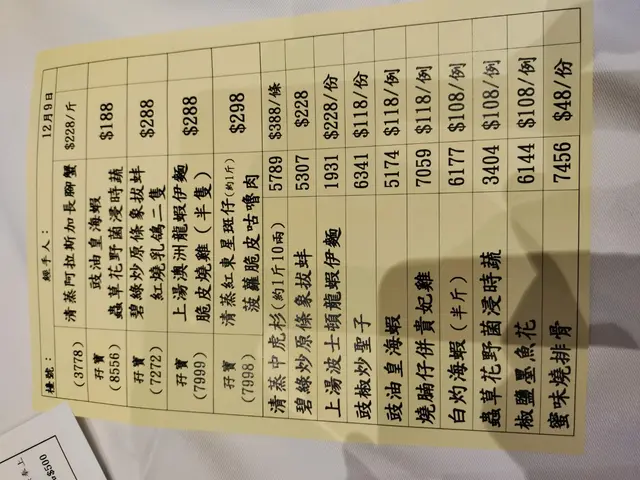 檯號： 經手人： 12月9日
(3778) 清蒸阿拉斯加長腳蟹 $228/斤
孖寶 (8556) 豉油皇海蝦 $188
蟲草花野菌浸時蔬
孖寶 (7272) 碧綠炒原條象拔蚌 $288
紅燒乳鴿二隻
孖寶 (7999) 上湯澳洲龍蝦伊麵 $288
脆皮燒雞（半隻）
孖寶 (7998) 清蒸紅東星斑仔(約1斤) $298
菠蘿脆皮咕嚕肉
清蒸中虎杉(約1斤10兩) 5789 $388/條
碧綠炒原條象拔蚌 5307 $228
上湯波士頓龍蝦伊麵 1931 $228/份
豉椒炒聖子 6341 $118/份
豉油皇海蝦 5174 $118/例
燒腩仔併貴妃雞 7059 $118/例
白灼海蝦(半斤) 6177 $108/例
蟲草花野菌浸時蔬 3404 $108/例
椒鹽墨魚花 6144 $108/例
蜜味燒排骨 7456 $48/份
$500